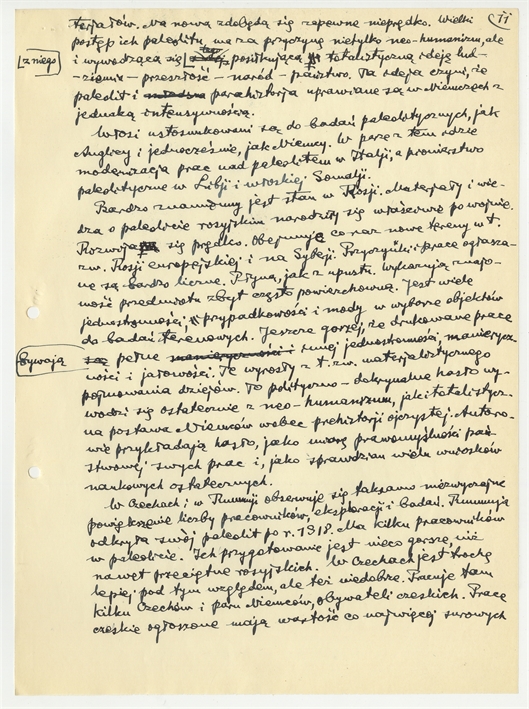 11
terjałów. Na nowa zdobędą się zapewne nieprędko. Wielki
postęp ich paleolitu, ma za przyczynę nietylko neo-humanizm, ale
z niego
i wywodzącą się tego posiłkującą totalistyczną ideję lud-
- ziemia - przeszłość - naród - państwo. Ta ideja czyni, że
paleolit i parahistorja uprawiane są w Niemczech z
jednaką intensywnością.
Włosi ustosunkowani są do badań paleolitycznych, jak
Anglicy i jednocześnie, jak Niemcy. W parze z tem idzie
modernizacja prac nad paleolitem w Italji, a pionierstwo
paleolityczne w Libji i włoskiej Somalji.
Bardzo znamienny jest stan w Rosji. Materjały i wie-
dza o paleolicie rosyjskim narodziły się właściwie po wojnie.
Rozwija się prędko. Obejmuje coraz nowe tereny w t.
zw. Rosji europejskiej i na Syberji. Przyczynki i prace ogłasza-
ne są bardzo liczne. Płyną, jak z upustu. Wykazują znajo-
mość przedmiotu zbyt często powierzchowną. Jest wiele
jednostronności, przypadkowości i mody w wyborze objektów
do badań terenowych. Jeszcze gorzej, że drukowane prace
bywają
są pełne innej jednostronności, manierycz-
ności i jałowości. Te wyrosły z t. zw. materjalistycznego
pojmowania dziejów. To polityczno-doktrynalne hasło wy-
wodzi się ostatecznie z neo-humanizmu, jak i totalistycz-
na postawa Niemców wobec prehistorji ojczystej. Autoro-
wie przykładają hasło, jako miarę prawomyślności pań-
stwowej swych prac i, jako sprawdzian wielu wniosków
naukowych ostatecznych.
W Czechach i w Rumunji obserwuje się także niezwyczajne
powiększenie liczby pracowników, eksploracji i badań. Rumunja
odkryła swój paleolit po r. 1918. Ma kilku pracowników
w paleolicie. Ich przygotowanie jest nieco gorsze, niż
nawet przeciętne rosyjskich. W Czechach jest trochę
lepiej pod tym względem, ale też niedobrze. Pracuje tam
kilku Czechów i paru Niemców, obywateli czeskich. Prace
czeskie ogłoszone mają wartość co najwięcej surowych